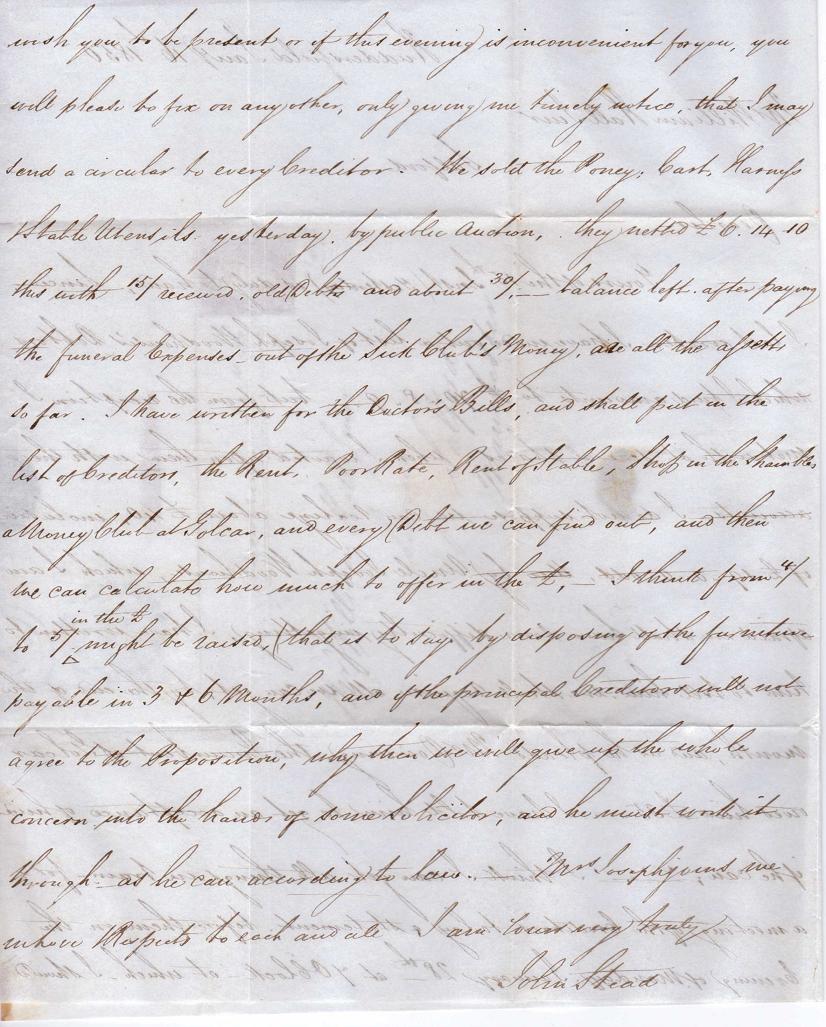 wish you to be present or if this evening is inconvenient for you, you
will please to fix on any other, only giving me timely notice, that I may
send a circular to every Creditor. We sold the Poney, Cart, Harness
& Stable Utensils yesterday, by public Auction, they netted £6. 14 10
this with 15/ received, old Debts and about 30/,— balance left after paying
the funeral Expenses out of the Sick Club's Money, are all the assetts
so far. I have written for the Doctor's Bills, and shall put in the
list of Creditors, the Rent, Poor Rate, Rent of Stable, Shop in the Shambles
a Money Club at Golcar, and every Debt we can find out, and then
we can calculate how much to offer in the £,— I think from 4/
to 5/ in the £ might be raised, (that is to say by disposing of the furniture
payable in 3 & 6 Months, and if the principal Creditors will not
agree to the Proposition, why then we will give up the whole
concern into the hands of some Solicitor, and he must work it
through as he can according to law. Mrs Joseph joins me
in Respects to each and all I am Yours very truly
John Stead